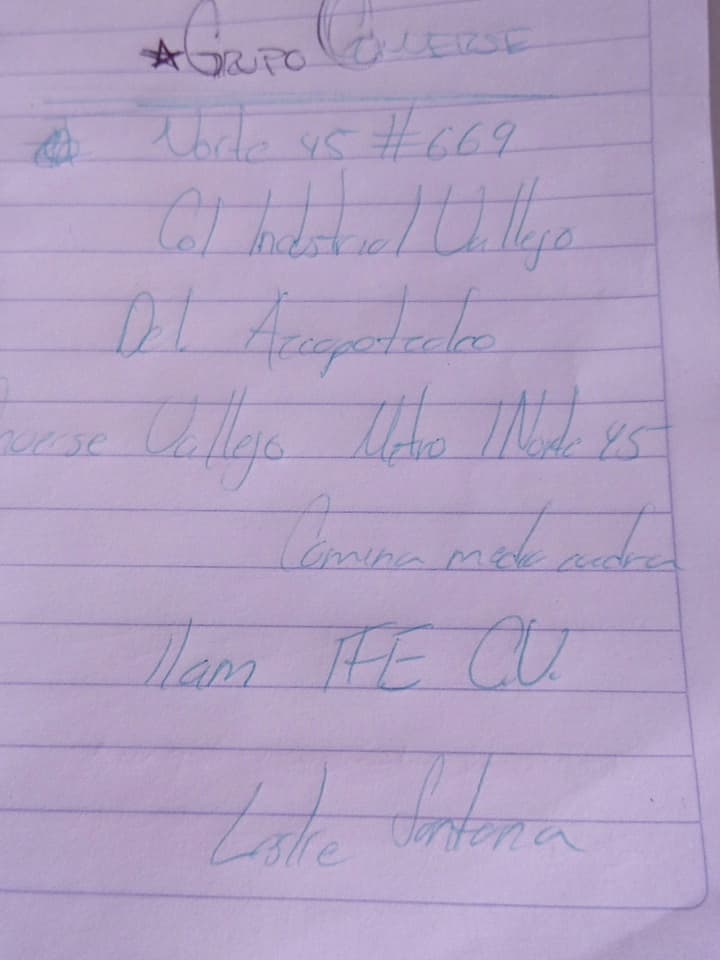 ☆ GRUPO CONVERSE
Norte 45 #669
Col Industrial Vallejo
Del. Azcapotzalco
Vallejo Metro / Norte 45
Camina media cuadra
11am IFE C.V.
Leslie Santana